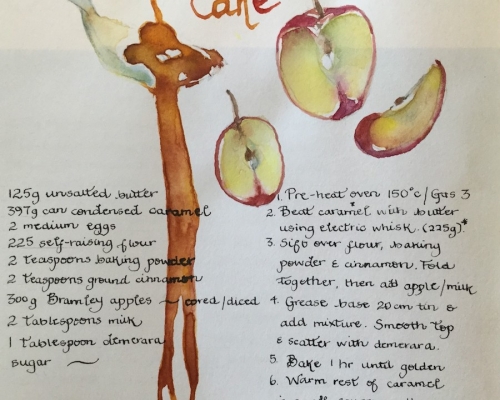 Cake
125g unsalted butter
397g can condensed caramel
2 medium eggs
225 self-raising flour
2 teaspoons baking powder
2 teaspoons ground cinnamon
300g Bramley apples ~ cored/diced
2 tablespoons milk
1 tablespoon demerara
sugar ~
1. Pre-heat oven 150°c/Gas 3
2. Beat caramel* with butter
using electric whisk. (225g)*
3. Sift over flour, baking
powder & cinnamon. Fold
together, then add apple/milk
4. Grease base 20cm tin &
add mixture. Smooth top
& scatter with demerara.
5. Bake 1 hr until golden
6. Warm rest of caramel